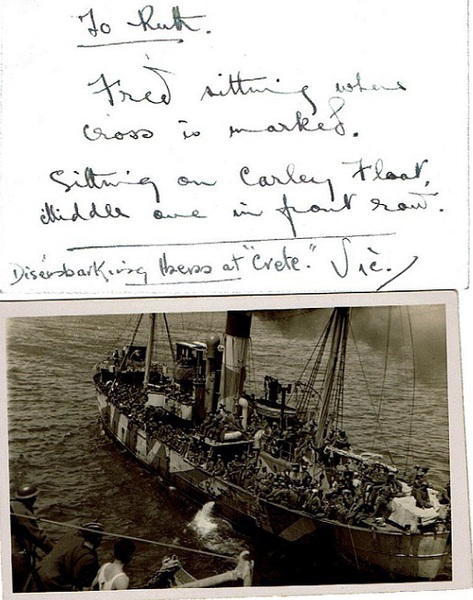 To Ruth.
Fred sitting where
cross is marked.
Sitting on Carley Float,
Middle one in front row.
Disembarking at "Crete."
Vic.